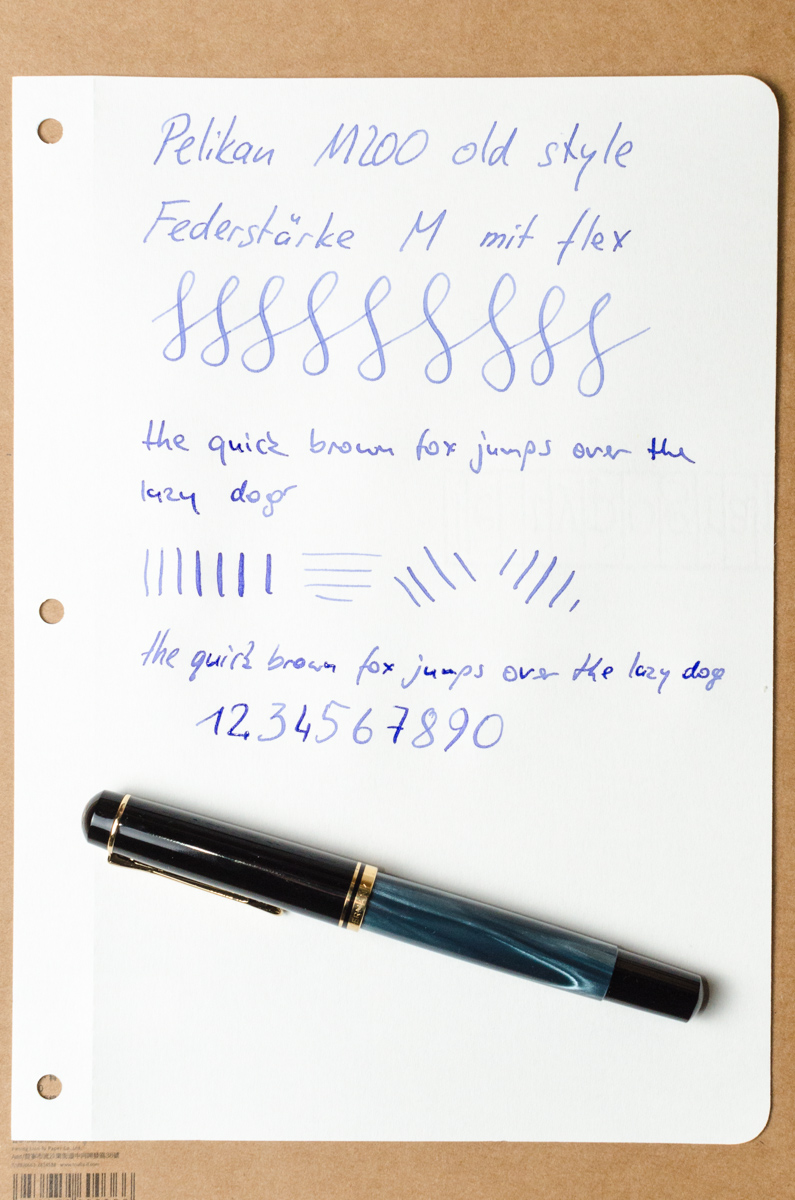 Pelikan M200 old style
Federstärke M mit flex
the quick brown fox jumps over the
lazy dog
the quick brown fox jumps over the lazy dog
1234567890